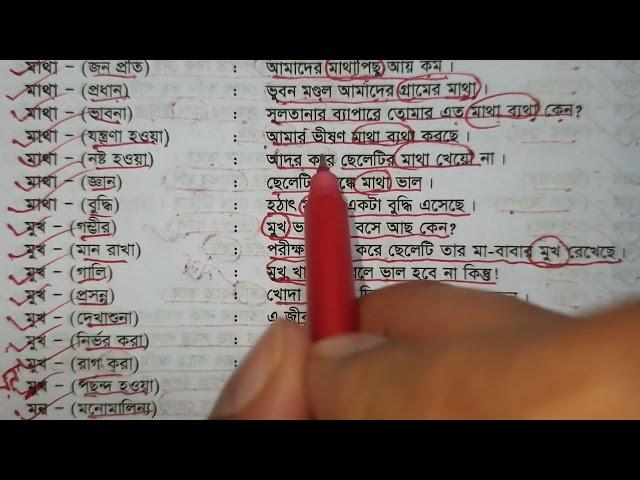 মাথা – (জন প্রতি) : আমাদের মাথাপিছু আয় কম ।
মাথা – (প্রধান) : ভুবন মণ্ডল আমাদের গ্রামের মাথা ।
মাথা – (ভাবনা) : সুলতানার ব্যাপারে তোমার এত মাথা ব্যথা কেন?
মাথা – (যন্ত্রণা হওয়া) : আমার ভীষণ মাথা ব্যথা করছে ।
মাথা – (নষ্ট হওয়া) : আদর করে ছেলেটির মাথা খেয়ো না ।
মাথা – (জ্ঞান) : ছেলেটির মাথা ভাল ।
মাথা – (বুদ্ধি) : হঠাৎ একটা বুদ্ধি এসেছে ।
মুখ – (গম্ভীর) : মুখ বসে আছ কেন?
মুখ – (মান রাখা) : করে ছেলেটি তার মা-বাবার মুখ রেখেছে ।
মুখ – (গালি) : মুখ ভাল হবে না কিন্তু!
মুখ – (প্রসন্ন) : খোদা
মুখ – (দেখাশুনা) : এ
মুখ – (নির্ভর করা)
মুখ – (রাগ করা)
মুখ – (পছন্দ হওয়া)
মন – (মনোমালিন্য)